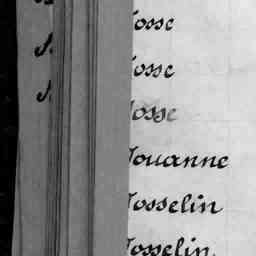 Josse
Josse
Josse
Jouanne
Josselin
Josselin